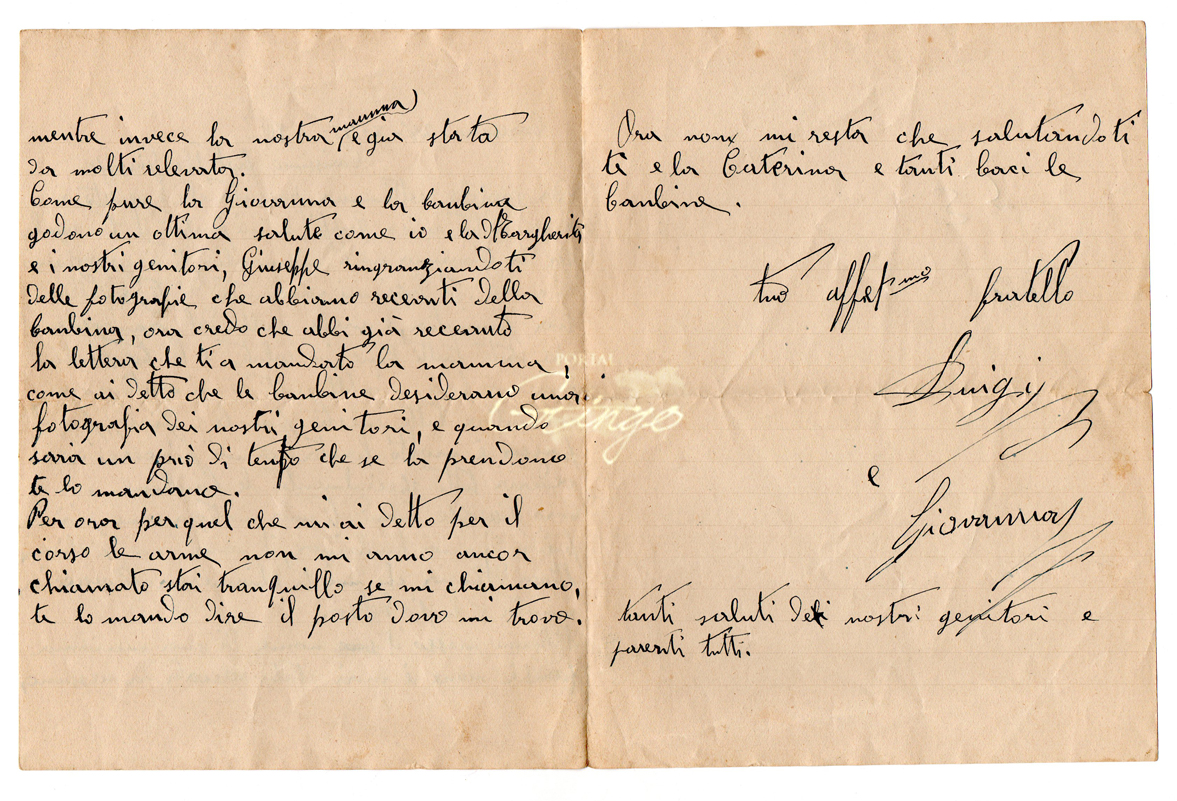 mentre invece la nostra mamma, e gia stata
da molti relevata.
Come pure la Giovanna e la bambina
godono un ottima salute come io e la Margherita
e i nostri genitori, Giuseppe ringranziandoti
delle fotografie che abbiamo receveuti della
bambina, ora credo che abbi già receveuto
la lettera che ti a mandato la mamma,
come ai detto che le bambine desiderano una
fotografia dei nostri genitori, e quando
sarà un può di tempo che se la prendono
te lo mandano.
Per ora per quel che mi ai detto per il
corso le arme non mi anno ancor
chiamato stai tranquillo se mi chiamano,
te lo mando dire il posto dovo mi trovo.
Ora non mi resta che salutandoti
te e la Caterina e tanti baci le
banbine.
tuo affet.mo fratello
Luigi
e
Giovanna
tanti saluti dei nostri genitori e
parenti tutti.
PORTAL
Gringo